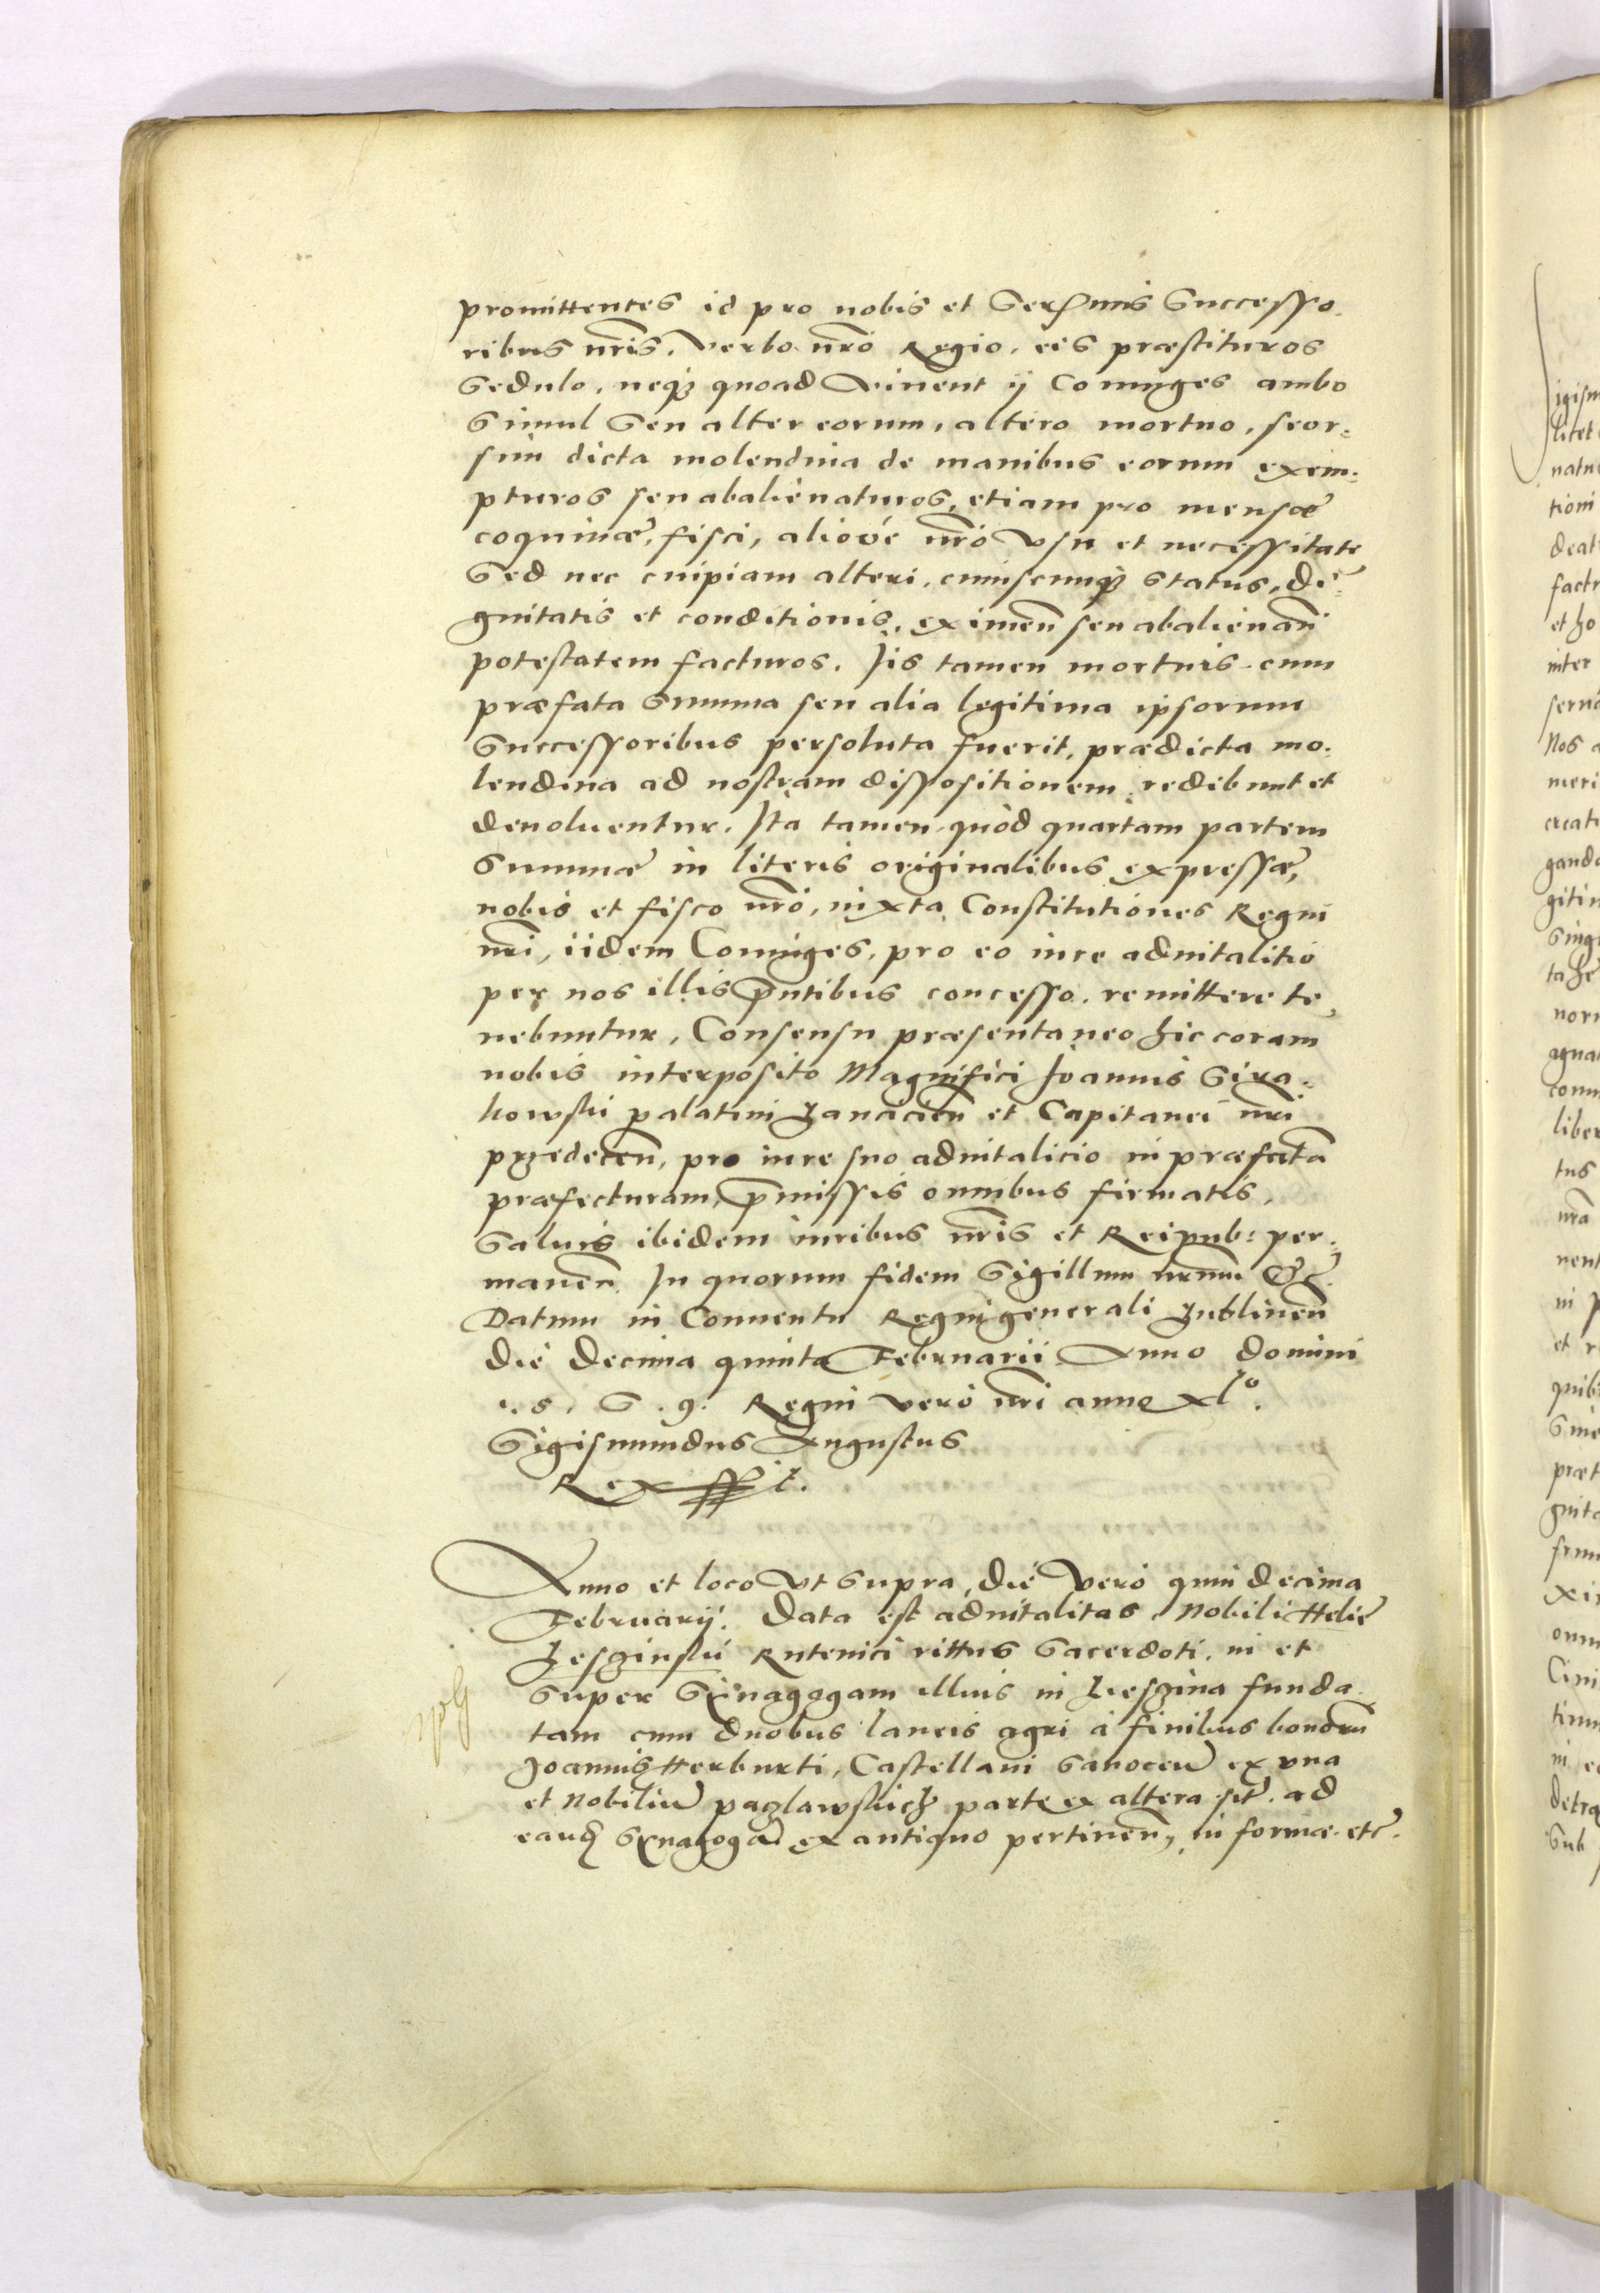 promittentes id pro nobis et Ser^mis Successo
ribus nr̃is. verbo nr̃o Regio. eis præstituros
Sedulo. neqʒ quoad viuent ij Coniuges ambo
Simul Seu alter eorum, altero mortuo, seor=
sim dicta molendina de manibus eorum exem=
pturos seu abalienaturos, etiam pro mensæ
coquinæ, fisci, alióve nr̃o vsu et necessitate
Sed nec cuipiam alteri. cuiuscunqʒ status. di=
gnitatis et conditionis, eximeñ seu abalienañ
potestatem facturos. Iis tamen mortuis cum
præfata Summa seu alia legitima ipsorum
Successoribus persoluta fuerit, prædicta mo=
lendina ad nostram dispositionem redibunt et
deuoluentur. Ita tamen quòd quartam partem
Summæ in literis originalibus expressæ,
nobis et fisco nr̃o, iuxta Constitutiones Regni
nr̃i, iidem Coniuges, pro eo iure aduitalitio
per nos illis p̃ntibus concesso. remittere te
nebuntur, Consensu præsentaneo hic coram
nobis interposito Magnifici Joannis Sira=
kowski palatini Lancicieñ et Capitanei nr̃i
przedeceñ, pro iure suo aduitalicio in præfatã
præfecturam, p̃missis omnibus firmatis,
Saluis ibidem iuribus nr̃is et Reipub: per=
maneñ. In quorum fidem Sigillum nr̃um &c.
Datum in Conuentu Regni generali Lublineñ
die decima quinta Februarii Anno domini
1. 5. 6. 9. Regni vero nr̃i anno xl^o.
Sigismundus Augustus
Rex sspt.
Anno et loco vt supra, die vero quindecima
Februarij. Data est aduitalitas Nobili Helie
Leszinski Rutenici rittus Sacerdoti. in et
Super Sÿnagogam illius in Leszina funda
tam cum duobus laneis agri à finibus bonorũ
Joannis Herburti, Castellani Sanoceñ ex vna
et Nobiliũ pazlawskich parte ex altera sit. ad
eandẽ Sÿnagogã ex antiquo pertineñ, in forma etc.